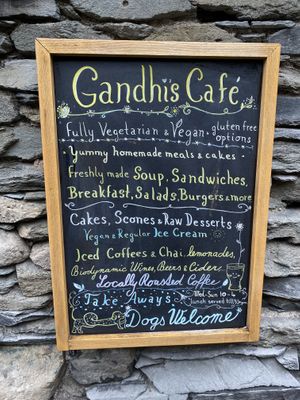 Gandhi's Café
Fully Vegetarian & Vegan · gluten free options
· Yummy homemade meals & cakes ·
Freshly made Soup, Sandwiches,
Breakfast, Salads, Burgers & more
Cakes, Scones & Raw Desserts
Vegan & Regular Ice Cream
Iced Coffees & Chai, lemonades,
Biodynamic Wines, Beers & Ciders
Locally Roasted Coffee
Take Aways
Wed-Sun 10-
lunch served
Dogs Welcome